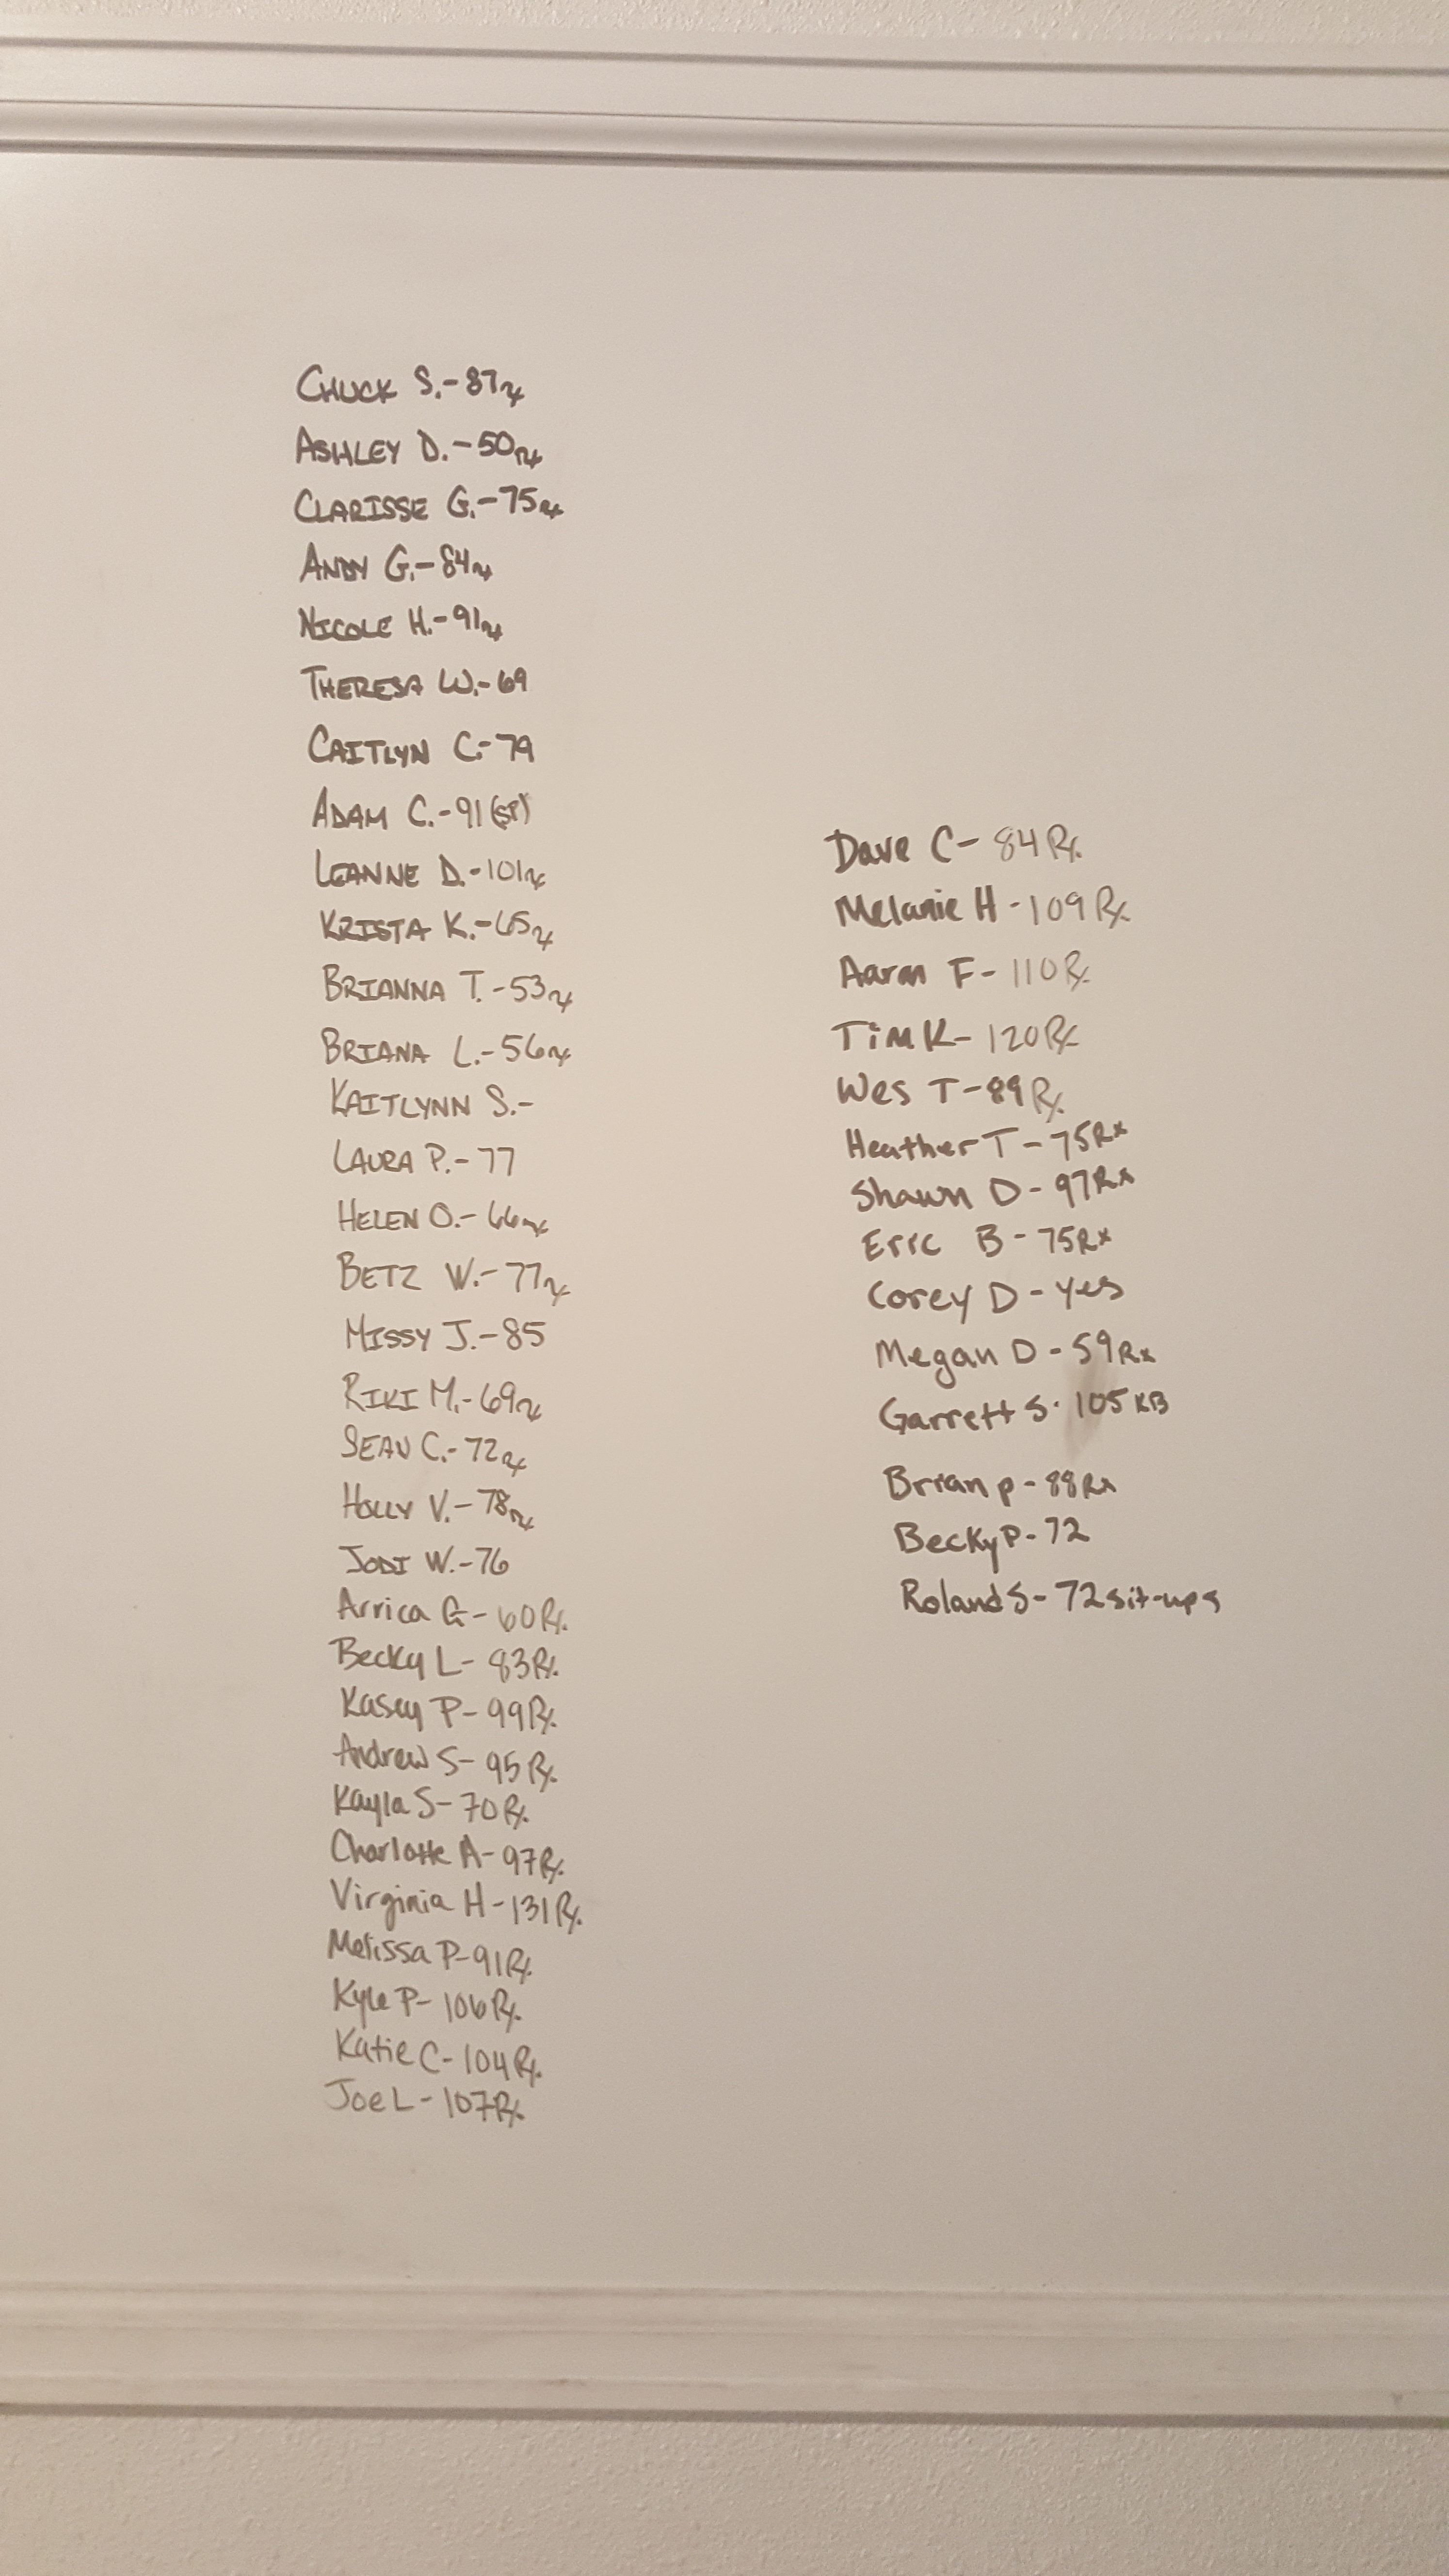 CHUCK S.-87rx
ASHLEY D.-50rx
CLARISSE G.-75rx
ANDY G.-84rx
NICOLE H.-91rx
THERESA W.-69
CAITLYN C.-79
ADAM C.-91
LEANNE D.-101rx
KRISTA K.-65rx
BRIANNA T.-53rx
BRIANA L.-56rx
KAITLYNN S.-
LAURA P.-77
HELEN O.-66rx
BETZ W.-77rx
MISSY J.-85
RIKI M.-69rx
SEAN C.-72rx
HOLLY V.-78rx
JODI W.-76
Arrica G-60Rx
Becky L-83Rx
Kasey P-99Rx
Andrew S-95Rx
Kayla S-70Rx
Charlotte A-97Rx
Virginia H-131Rx
Melissa P-91Rx
Kyle P-106Rx
Katie C-104Rx
Joe L-107Rx
Dave C-84Rx
Melanie H-109Rx
Aaron F-110Rx
Tim K-120Rx
Wes T-89Rx
Heather T-75Rx
Shawn D-97Rx
Eric B-75Rx
Corey D-yes
Megan D-59Rx
Garrett S-105KB
Brian P-88Rx
Becky P-72
Roland S-72 sit-ups